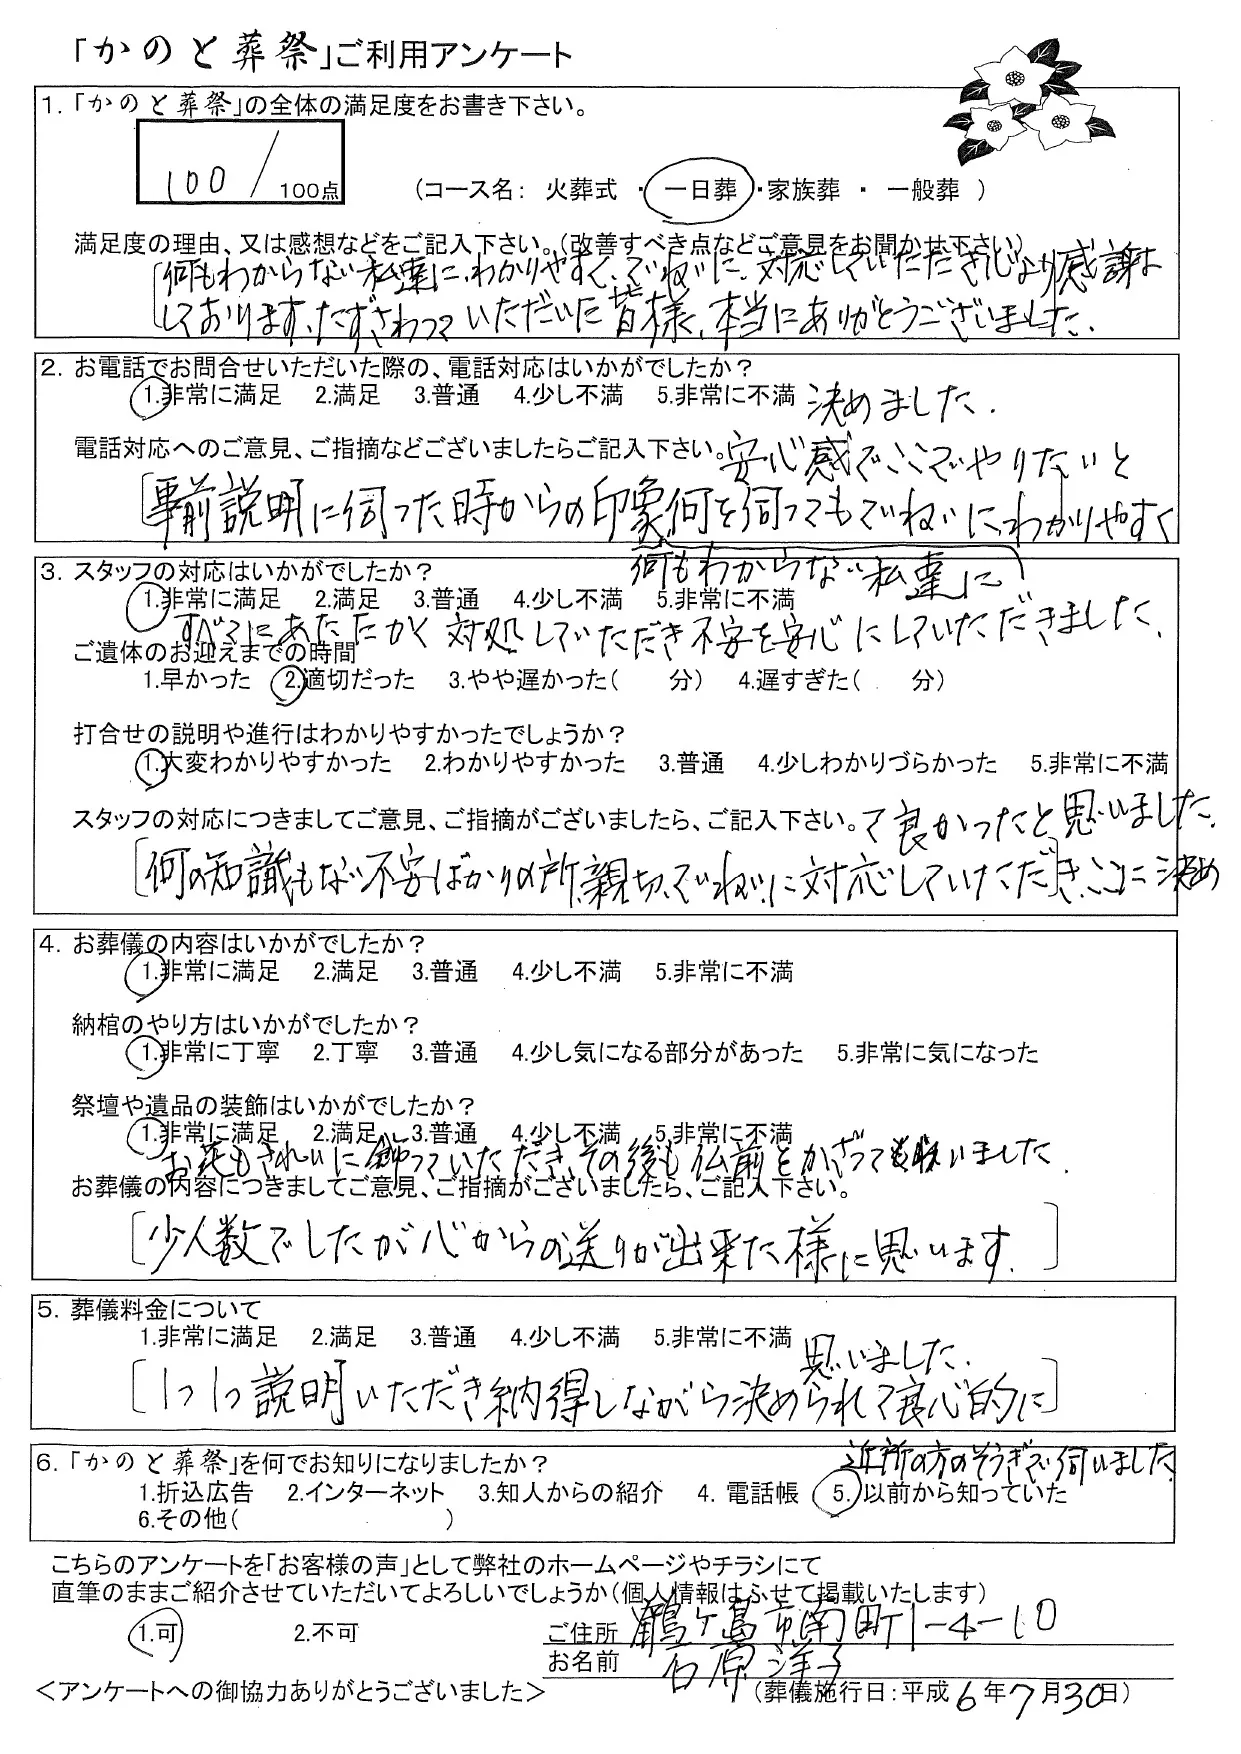 「かのと葬祭」ご利用アンケート
1.「かのと葬祭」の全体の満足度をお書き下さい。
100/100点
(コース名: 火葬式 ・ 一日葬 ・家族葬 ・ 一般葬 )
満足度の理由、又は感想などをご記入下さい。(改善すべき点などご意見をお聞かせ下さい)
何もわからない私達に、わかりやすく、ていねいに、対応していただき心より感謝は
しております。たずさわっていただいた皆様、本当にありがとうございました。
2. お電話でお問合せいただいた際の、電話対応はいかがでしたか?
1.非常に満足 2.満足 3.普通 4.少し不満 5.非常に不満
電話対応へのご意見、ご指摘などございましたらご記入下さい。
事前説明に伺った時からの印象何を伺ってもていねいに、わかりやすく
安心感でここでやりたいと
決めました.
3. スタッフの対応はいかがでしたか?
何もわからない私達に
1.非常に満足 2.満足 3.普通 4.少し不満 5.非常に不満
すべてにあたたかく対処していただき不安を安心にしていただきました.
ご遺体のお迎えまでの時間
1.早かった 2.適切だった 3.やや遅かった( 分) 4.遅すぎた( 分)
打合せの説明や進行はわかりやすかったでしょうか?
1.大変わかりやすかった 2.わかりやすかった 3.普通 4.少しわかりづらかった 5.非常に不満
スタッフの対応につきましてご意見、ご指摘がございましたら、ご記入下さい。
何の知識もない不安ばかりの所、親切、ていねいに対応していただき、ここに決め
て良かったと思いました.
4. お葬儀の内容はいかがでしたか?
1.非常に満足 2.満足 3.普通 4.少し不満 5.非常に不満
納棺のやり方はいかがでしたか?
1.非常に丁寧 2.丁寧 3.普通 4.少し気になる部分があった 5.非常に気になった
祭壇や遺品の装飾はいかがでしたか?
1.非常に満足 2.満足 3.普通 4.少し不満 5.非常に不満
お花もきれいに飾っていただき、その後も仏前とかざっても いました.
お葬儀の内容につきましてご意見、ご指摘がございましたら、ご記入下さい。
[少人数でしたが心からの送りが出来た様に思います.]
5. 葬儀料金について
1.非常に満足 2.満足 3.普通 4.少し不満 5.非常に不満
[1つ1つ説明いただき納得しながら決められて良心的に]
思いました.
6.「かのと葬祭」を何でお知りになりましたか?
近所の方のそうぎで伺いました
1.折込広告 2.インターネット 3.知人からの紹介 4. 電話帳 5. 以前から知っていた
6.その他( )
こちらのアンケートを「お客様の声」として弊社のホームページやチラシにて
直筆のままご紹介させていただいてよろしいでしょうか(個人情報はふせて掲載いたします)
1.可 2.不可
ご住所 鶴ヶ島市南町1-4-10
お名前 石原洋子
<アンケートへの御協力ありがとうございました>
(葬儀施行日:平成6年7月30日)